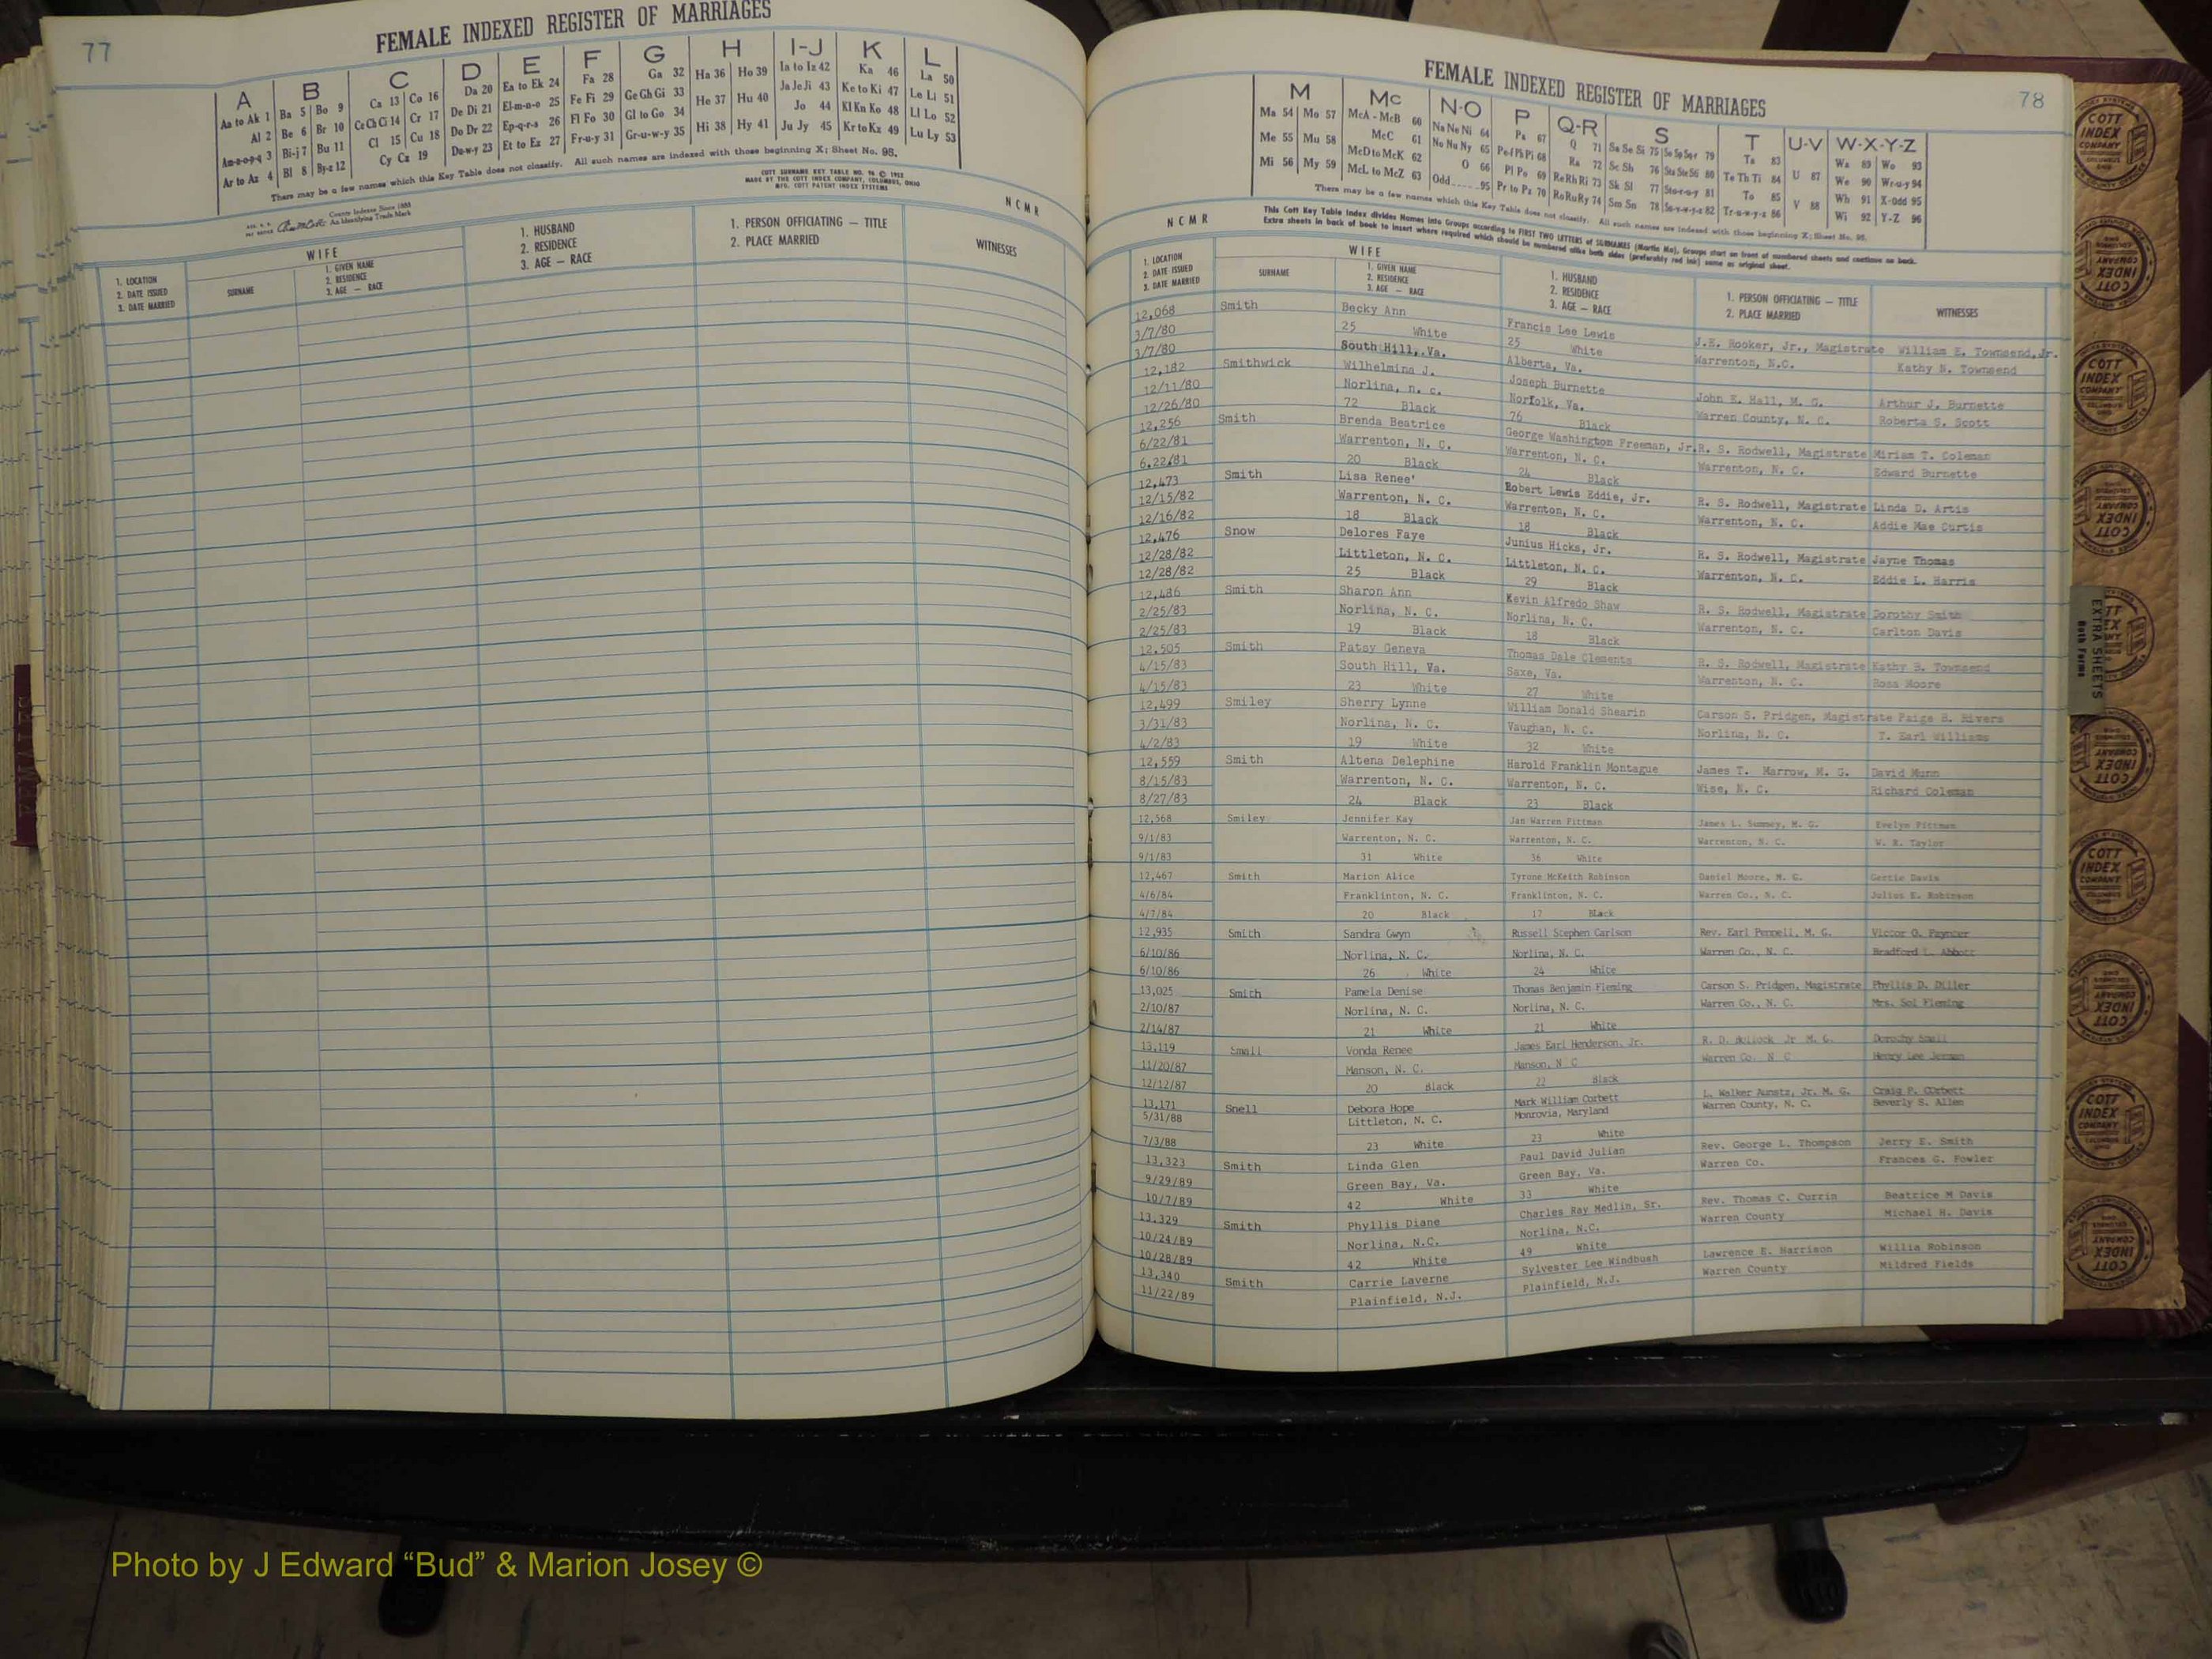 77
FEMALE INDEXED REGISTER OF MARRIAGES
A B C D E F G H I-J K L
Aa to Ak 1 Ba 5 Bo 9 Ca 13 Co 16 Da 20 Ea to Ek 24 Fa 28 Ga 32 Ha 36 Ho 39 Ia to Iz 42 Ka 46 La 50
Al 2 Be 6 Br 10 Ce Ch Ci 14 Cr 17 De Di 21 El-m-n-o 25 Fe Fi 29 Ge Gh Gi 33 He 37 Hu 40 Ja Je Ji 43 Ke to Ki 47 Le Li 51
Am-n-o-p-q 3 Bi-j 7 Bu 11 Cl 15 Cu 18 Do Dr 22 Ep-q-r-s 26 Fl Fo 30 Gl to Go 34 Hi 38 Hy 41 Jo 44 Kl Kn Ko 48 Ll Lo 52
Ar to Az 4 Bl 8 By-z 12 Cy Cz 19 Du-w-y 23 Et to Ez 27 Fr-u-y 31 Gr-u-w-y 35 Ju Jy 45 Kr to Kz 49 Lu Ly 53
There may be a few names which this Key Table does not classify. All such names are indexed with those beginning X; Sheet No. 95.
COTT SURNAME KEY TABLE NO. 96 © 1952
MADE BY THE COTT INDEX COMPANY, COLUMBUS, OHIO
MFG. COTT PATENT INDEX SYSTEMS
County Indexes Since 1888
An Identifying Trade Mark
NCMR
1. LOCATION
2. DATE ISSUED
3. DATE MARRIED
WIFE
SURNAME
1. GIVEN NAME
2. RESIDENCE
3. AGE — RACE
1. HUSBAND
2. RESIDENCE
3. AGE — RACE
1. PERSON OFFICIATING — TITLE
2. PLACE MARRIED
WITNESSES
FEMALE INDEXED REGISTER OF MARRIAGES
78
M Mc N-O P Q-R S T U-V W-X-Y-Z
Ma 54 Mo 57 McA - McB 60 Na Ne Ni 64 Pa 67 Q 71 Sa Se Si 75 So Sp Sq-r 79 Ta 83 Wa 89 Wo 93
Me 55 Mu 58 McC 61 No Nu Ny 65 Pe-f Ph Pi 68 Ra 72 Sc Sh 76 Sta Ste Sti 80 Te Th Ti 84 U 87 We 90 Wr-u-y 94
Mi 56 My 59 McD to McK 62 O 66 Pl Po 69 Re Rh Ri 73 Sk Sl 77 Sto-r-u-y 81 To 85 Wh 91 X-odd 95
McL to McZ 63 Odd 95 Pr to Pz 70 Ro Ru Ry 74 Sm Sn 78 Su-v-w-y-z 82 Tr-u-w-y-z 86 V 88 Wi 92 Y-Z 96
There may be a few names which this Key Table does not classify. All such names are indexed with those beginning X; Sheet No. 95.
This Cott Key Table Index divides Names into Groups according to FIRST TWO LETTERS of SURNAMES (Martin Ma). Groups start on front of numbered sheets and continue on back.
Extra sheets in back of book to insert where required which should be numbered alike both sides (preferably red ink) same as original sheet.
NCMR
1. LOCATION
2. DATE ISSUED
3. DATE MARRIED
WIFE
SURNAME
1. GIVEN NAME
2. RESIDENCE
3. AGE — RACE
1. HUSBAND
2. RESIDENCE
3. AGE — RACE
1. PERSON OFFICIATING — TITLE
2. PLACE MARRIED
WITNESSES
12,068 Smith Becky Ann Francis Lee Lewis J.E. Rooker, Jr., Magistrate William E. Townsend,Jr.
3/7/80 25 White 25 White Warrenton, N.C. Kathy N. Townsend
3/7/80 South Hill, Va. Alberta, Va.
12,182 Smithwick Wilhelmina J. Joseph Burnette John K. Hall, M. G. Arthur J. Burnette
12/11/80 Norlina, n. c. Norfolk, Va. Warren County, N. C. Roberta S. Scott
12/26/80 72 Black 76 Black
12,256 Smith Brenda Beatrice George Washington Freeman, Jr. R. S. Rodwell, Magistrate Miriam T. Coleman
6/22/81 Warrenton, N. C. Warrenton, N. C. Warrenton, N. C. Edward Burnette
6.22/81 20 Black 24 Black
12,473 Smith Lisa Renee' Robert Lewis Eddie, Jr. R. S. Rodwell, Magistrate Linda D. Artis
12/15/82 Warrenton, N. C. Warrenton, N. C. Warrenton, N. C. Addie Mae Curtis
12/16/82 18 Black 18 Black
12,476 Snow Delores Faye Junius Hicks, Jr. R. S. Rodwell, Magistrate Jayne Thomas
12/28/82 Littleton, N. C. Littleton, N. C. Warrenton, N. C. Eddie L. Harris
12/28/82 25 Black 29 Black
12,486 Smith Sharon Ann Kevin Alfredo Shaw R. S. Rodwell, Magistrate Dorothy Smith
2/25/83 Norlina, N. C. Norlina, N. C. Warrenton, N. C. Carlton Davis
2/25/83 19 Black 18 Black
12,505 Smith Patsy Geneva Thomas Dale Clements R. S. Rodwell, Magistrate Kathy B. Townsend
4/15/83 South Hill, Va. Saxe, Va. Warrenton, N. C. Rosa Moore
4/15/83 23 White 27 White
12,499 Smiley Sherry Lynne William Donald Shearin Carson S. Pridgen, Magistrate Paige B. Rivers
3/31/83 Norlina, N. C. Vaughan, N. C. Norlina, N. C. T. Earl Williams
4/2/83 19 White 32 White
12,559 Smith Altena Delephine Harold Franklin Montague James T. Marrow, M. G. David Munn
8/15/83 Warrenton, N. C. Warrenton, N. C. Wise, N. C. Richard Coleman
8/27/83 24 Black 23 Black
12,568 Smiley Jennifer Kay Jan Warren Pittman James L. Summey, M. G. Evelyn Pittman
9/1/83 Warrenton, N. C. Warrenton, N. C. Warrenton, N. C. W. R. Taylor
9/1/83 31 White 36 White
12,467 Smith Marion Alice Tyrone McKeith Robinson Daniel Moore, M. G. Gertie Davis
4/6/84 Franklinton, N. C. Franklinton, N. C. Warren Co., N. C. Julius E. Robinson
4/7/84 20 Black 17 Black
12,935 Smith Sandra Gwyn Russell Stephen Carlson Rev. Earl Pennell, M. G. Victor O. Paynter
6/10/86 Norlina, N. C. Norlina, N. C. Warren Co., N. C. Bradford L. Abbott
6/10/86 26 White 24 White
13,025 Smith Pamela Denise Thomas Benjamin Fleming Carson S. Pridgen, Magistrate Phyllis D. Diller
2/10/87 Norlina, N. C. Norlina, N. C. Warren Co., N. C. Mrs. Sol Fleming
2/14/87 21 White 21 White
13,119 Small Vonda Renee James Earl Henderson, Jr. R. D. Bullock Jr M. G. Dorothy Small
11/20/87 Manson, N. C. Manson, N C Warren Co. N C Henry Lee
12/12/87 20 Black 22 Black
13,171 Snell Debora Hope Mark William Corbett L. Walker Jr. M. G. Craig P. COrbett
5/31/88 Littleton, N. C. Monrovia, Maryland Warren County, N. C. Beverly S. Allen
7/3/88 23 White 23 White
13,323 Smith Linda Glen Paul David Julian Rev. George L. Thompson Jerry E. Smith
9/29/89 Green Bay, Va. Green Bay, Va. Warren Co. Frances G. Fowler
10/7/89 42 White 33 White
13,329 Smith Phyllis Diane Charles Ray Medlin, Sr. Rev. Thomas C. Currin Beatrice M Davis
10/24/89 Norlina, N.C. Norlina, N.C. Warren County Michael H. Davis
10/28/89 42 White 49 White
13,340 Smith Carrie Laverne Sylvester Lee Windbush Lawrence E. Harrison Willia Robinson
11/22/89 Plainfield, N.J. Plainfield, N.J. Warren County Mildred Fields
EXTRA SHEETS
Both Forms
COTT INDEX COMPANY
Photo by J Edward “Bud” & Marion Josey ©